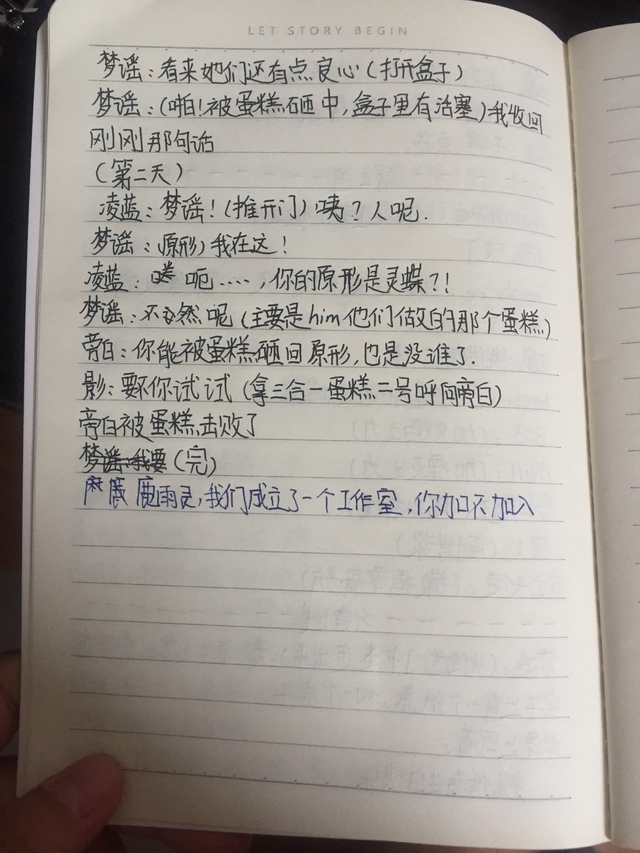 LET STORY BEGIN
梦谣：看来她们还有点良心（打开盒子）
梦谣：（啪！被蛋糕砸中，盒子里有活塞）我收回
刚刚那句话
（第二天）
凌蓝：梦谣！（推开门）咦？人呢．
梦谣：（原形）我在这！
凌蓝：呃····，你的原形是灵蝶？！
梦谣：不然呢（主要是him他们做的那个蛋糕）
旁白：你能被蛋糕砸回原形，也是没谁了．
影：要不你试试（拿三合一蛋糕二号呼向旁白）
旁白被蛋糕击败了
梦谣：我要（完）
雨灵，我们成立了一个工作室，你加不加入